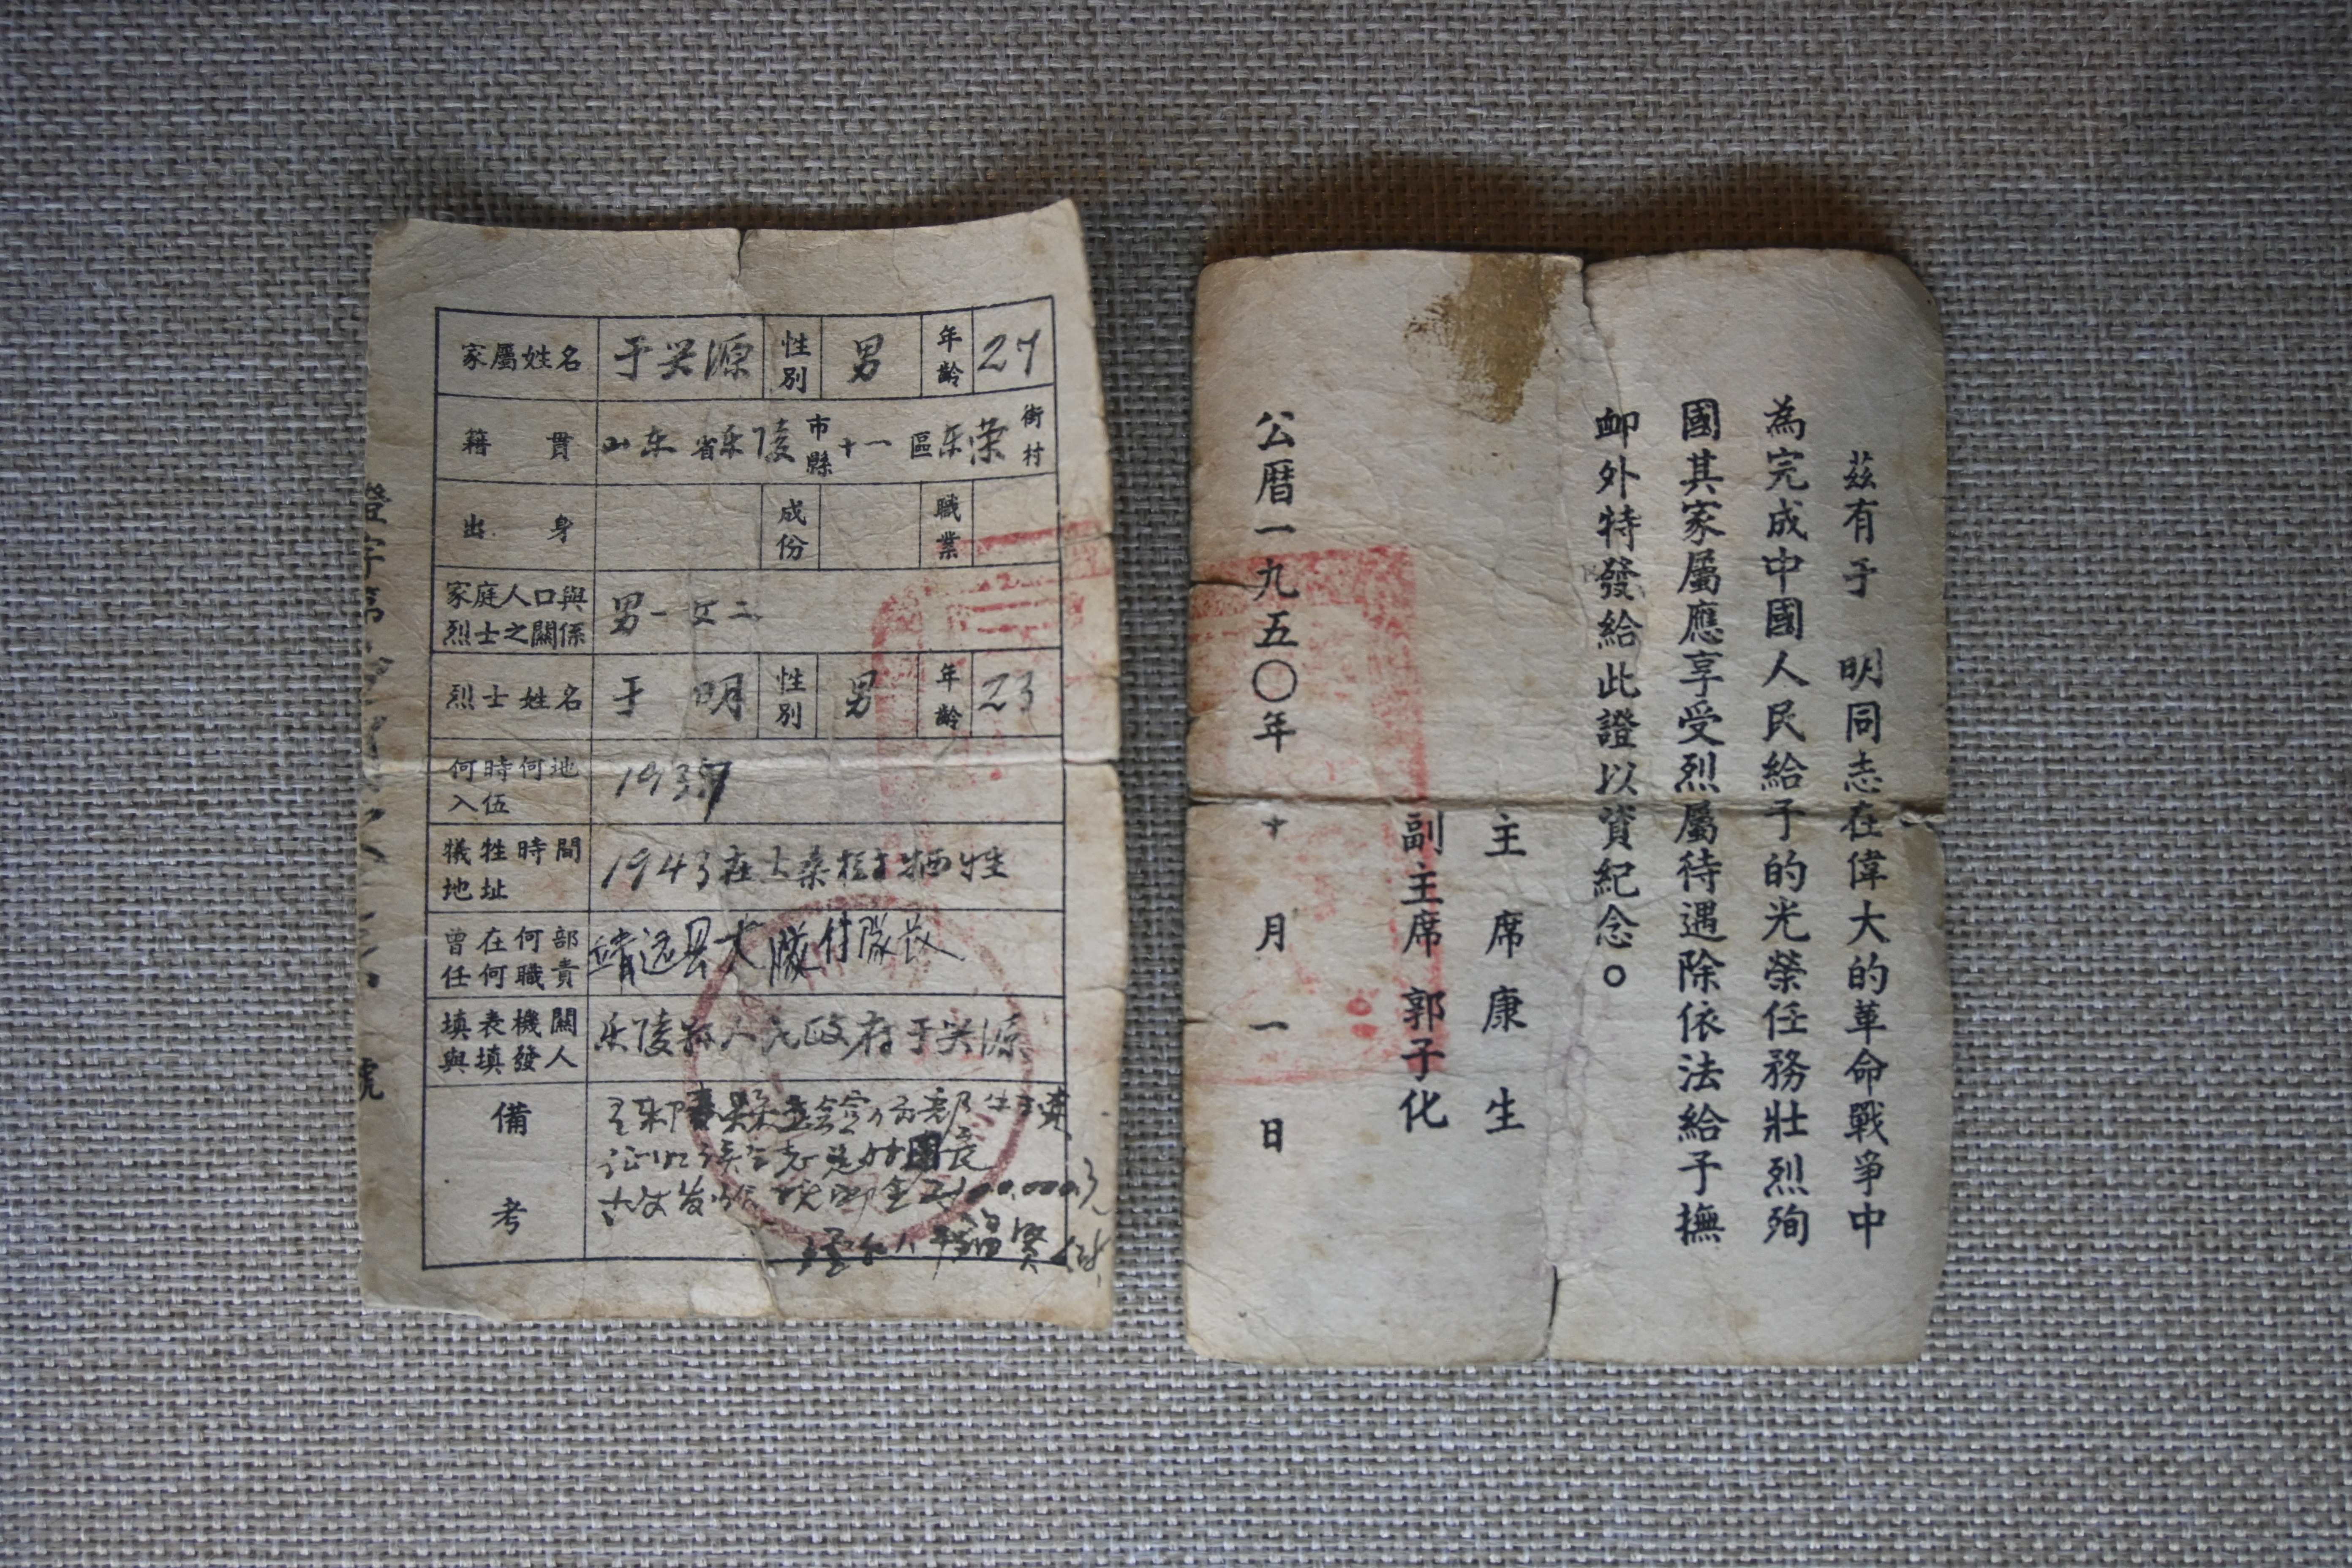 家屬姓名 于兴源 性別 男 年齡 27
籍貫 山东省乐陵市縣十一區 街村
出身 成份 職業
家庭人口與烈士之關係 男一女二
烈士姓名 于明 性別 男 年齡 23
何時何地入伍 1937
犧牲時間地址 1943在大桑树牺牲
曾在何部任何職責 靖远县大队付队长
填表機關與填發人 乐陵县人民政府于兴源
備考
茲有于明同志在偉大的革命戰爭中
為完成中國人民給予的光榮任務壯烈殉
國其家屬應享受烈屬待遇除依法給予撫
卹外特發給此證以資紀念。
主席康生
副主席郭子化
公曆一九五〇年十月一日
證字第
號